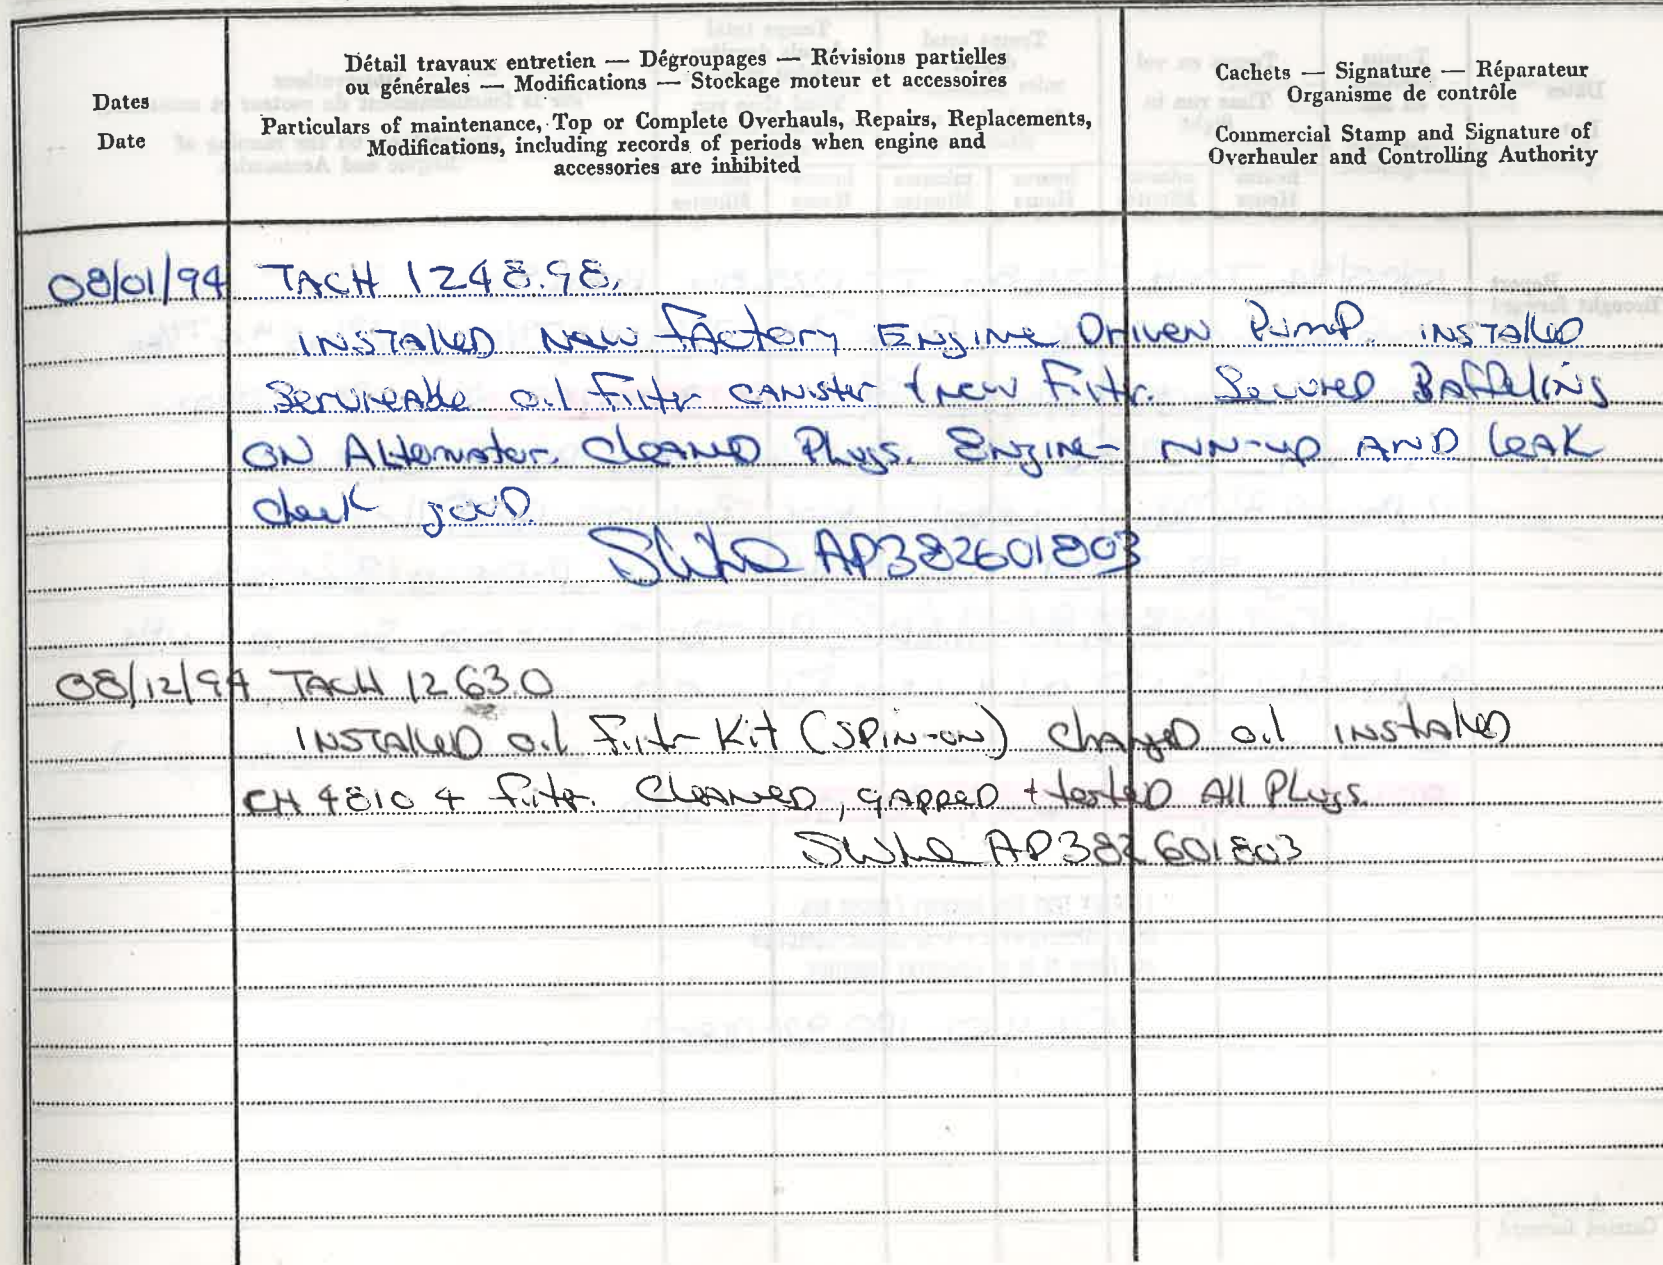 Dates
Date
Détail travaux entretien — Dégroupages — Révisions partielles
ou générales — Modifications — Stockage moteur et accessoires
Particulars of maintenance, Top or Complete Overhauls, Repairs, Replacements,
Modifications, including records of periods when engine and
accessories are inhibited
Cachets — Signature — Réparateur
Organisme de contrôle
Commercial Stamp and Signature of
Overhauler and Controlling Authority
08/01/94 TACH 1248.98.
INSTALLED New FACTORY ENGINE DRIVEN PUMP. INSTALLED
Serviceable oil Filter CANISTER & New Filtr. Secured Baffeling
ON Alternator. CleANED Plugs. ENGINE RUN-UP AND leAK
check gooD.
AP382601803
08/12/94 TACH 1263.0
INSTALLED oil Filtr Kit (SPIN-ON) changeD oil INSTAlleD
CH 48104 filtr. CleANED, gAPPED + testeD All Plugs.
AP382601803